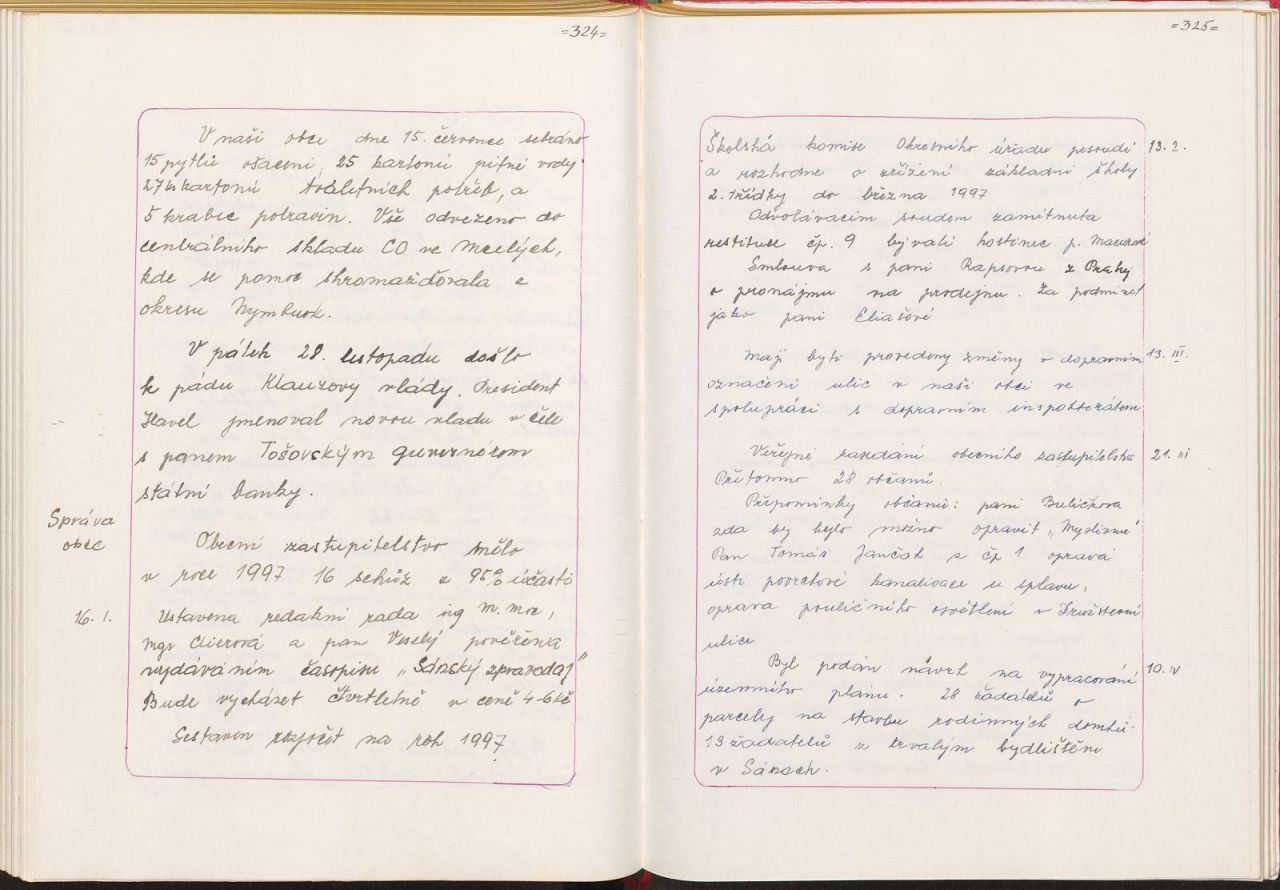 =324=
V naši obce dne 15. července sebráno
15 pytlů ošacení, 25 kartonů pitné vody
27 kartonů toaletních potřeb, a
5 krabic potravin. Vše odvezeno do
centrálního skladu CO ve Mcelých,
kde se pomoc shromažďovala z
okresu Nymburk.
V pátek 28. listopadu došlo
k pádu Klausovy vlády. President
Havel jmenoval novou vladu v čele
s panem Tošovským guvernérem
státní banky.
Správa
obec
Obecní zastupitelstvo mělo
v roce 1997 16 schůz z 95% účastí
16. 1.
Ustavena redakní rada ing M.
mgr a pan Veselý pověřena
vydáváním časopisu „Sánský zpravodaj"
Bude vycházet čtvrtletně v ceně 4-6 kč
Sestaven rozpočet na rok 1997
=325=
Školská komise Okresního úřadu posoudí 13. 2.
a rozhodne o zřízení základní školy
2. třídky do března 1997
Odvolávacím soudem zamítnuta
restituce čp. 9 bývalí hostinec p.
Smlouva s paní Rapsovou z Prahy
o pronájmu na prodejnu. Za podmínet
jako paní Eliašové
Mají byti provedeny změny v dopravním 13. III.
označení ulic v naši obci ve
spolupráci s dopravním inspektorátem
Veřejné zasedání obecního zastupitelstva 21. III
Přítomno 28 občanů.
Připomínky občanů: paní Buličkova
zda by bylo možno opravit „Myslivnu"
Pan Tomáš Jančák z čp 1 oprava
ústí povrchové kanalizace u splavu,
oprava pouličního osvětlení v Družstevní
ulici
Byl podán návrh na vypracování 10. IV
územního plánu. 28 žadatelů o
parcely na stavbu rodinných domků.
13 žadatelů z trvalým bydlištěm
v Sánech.